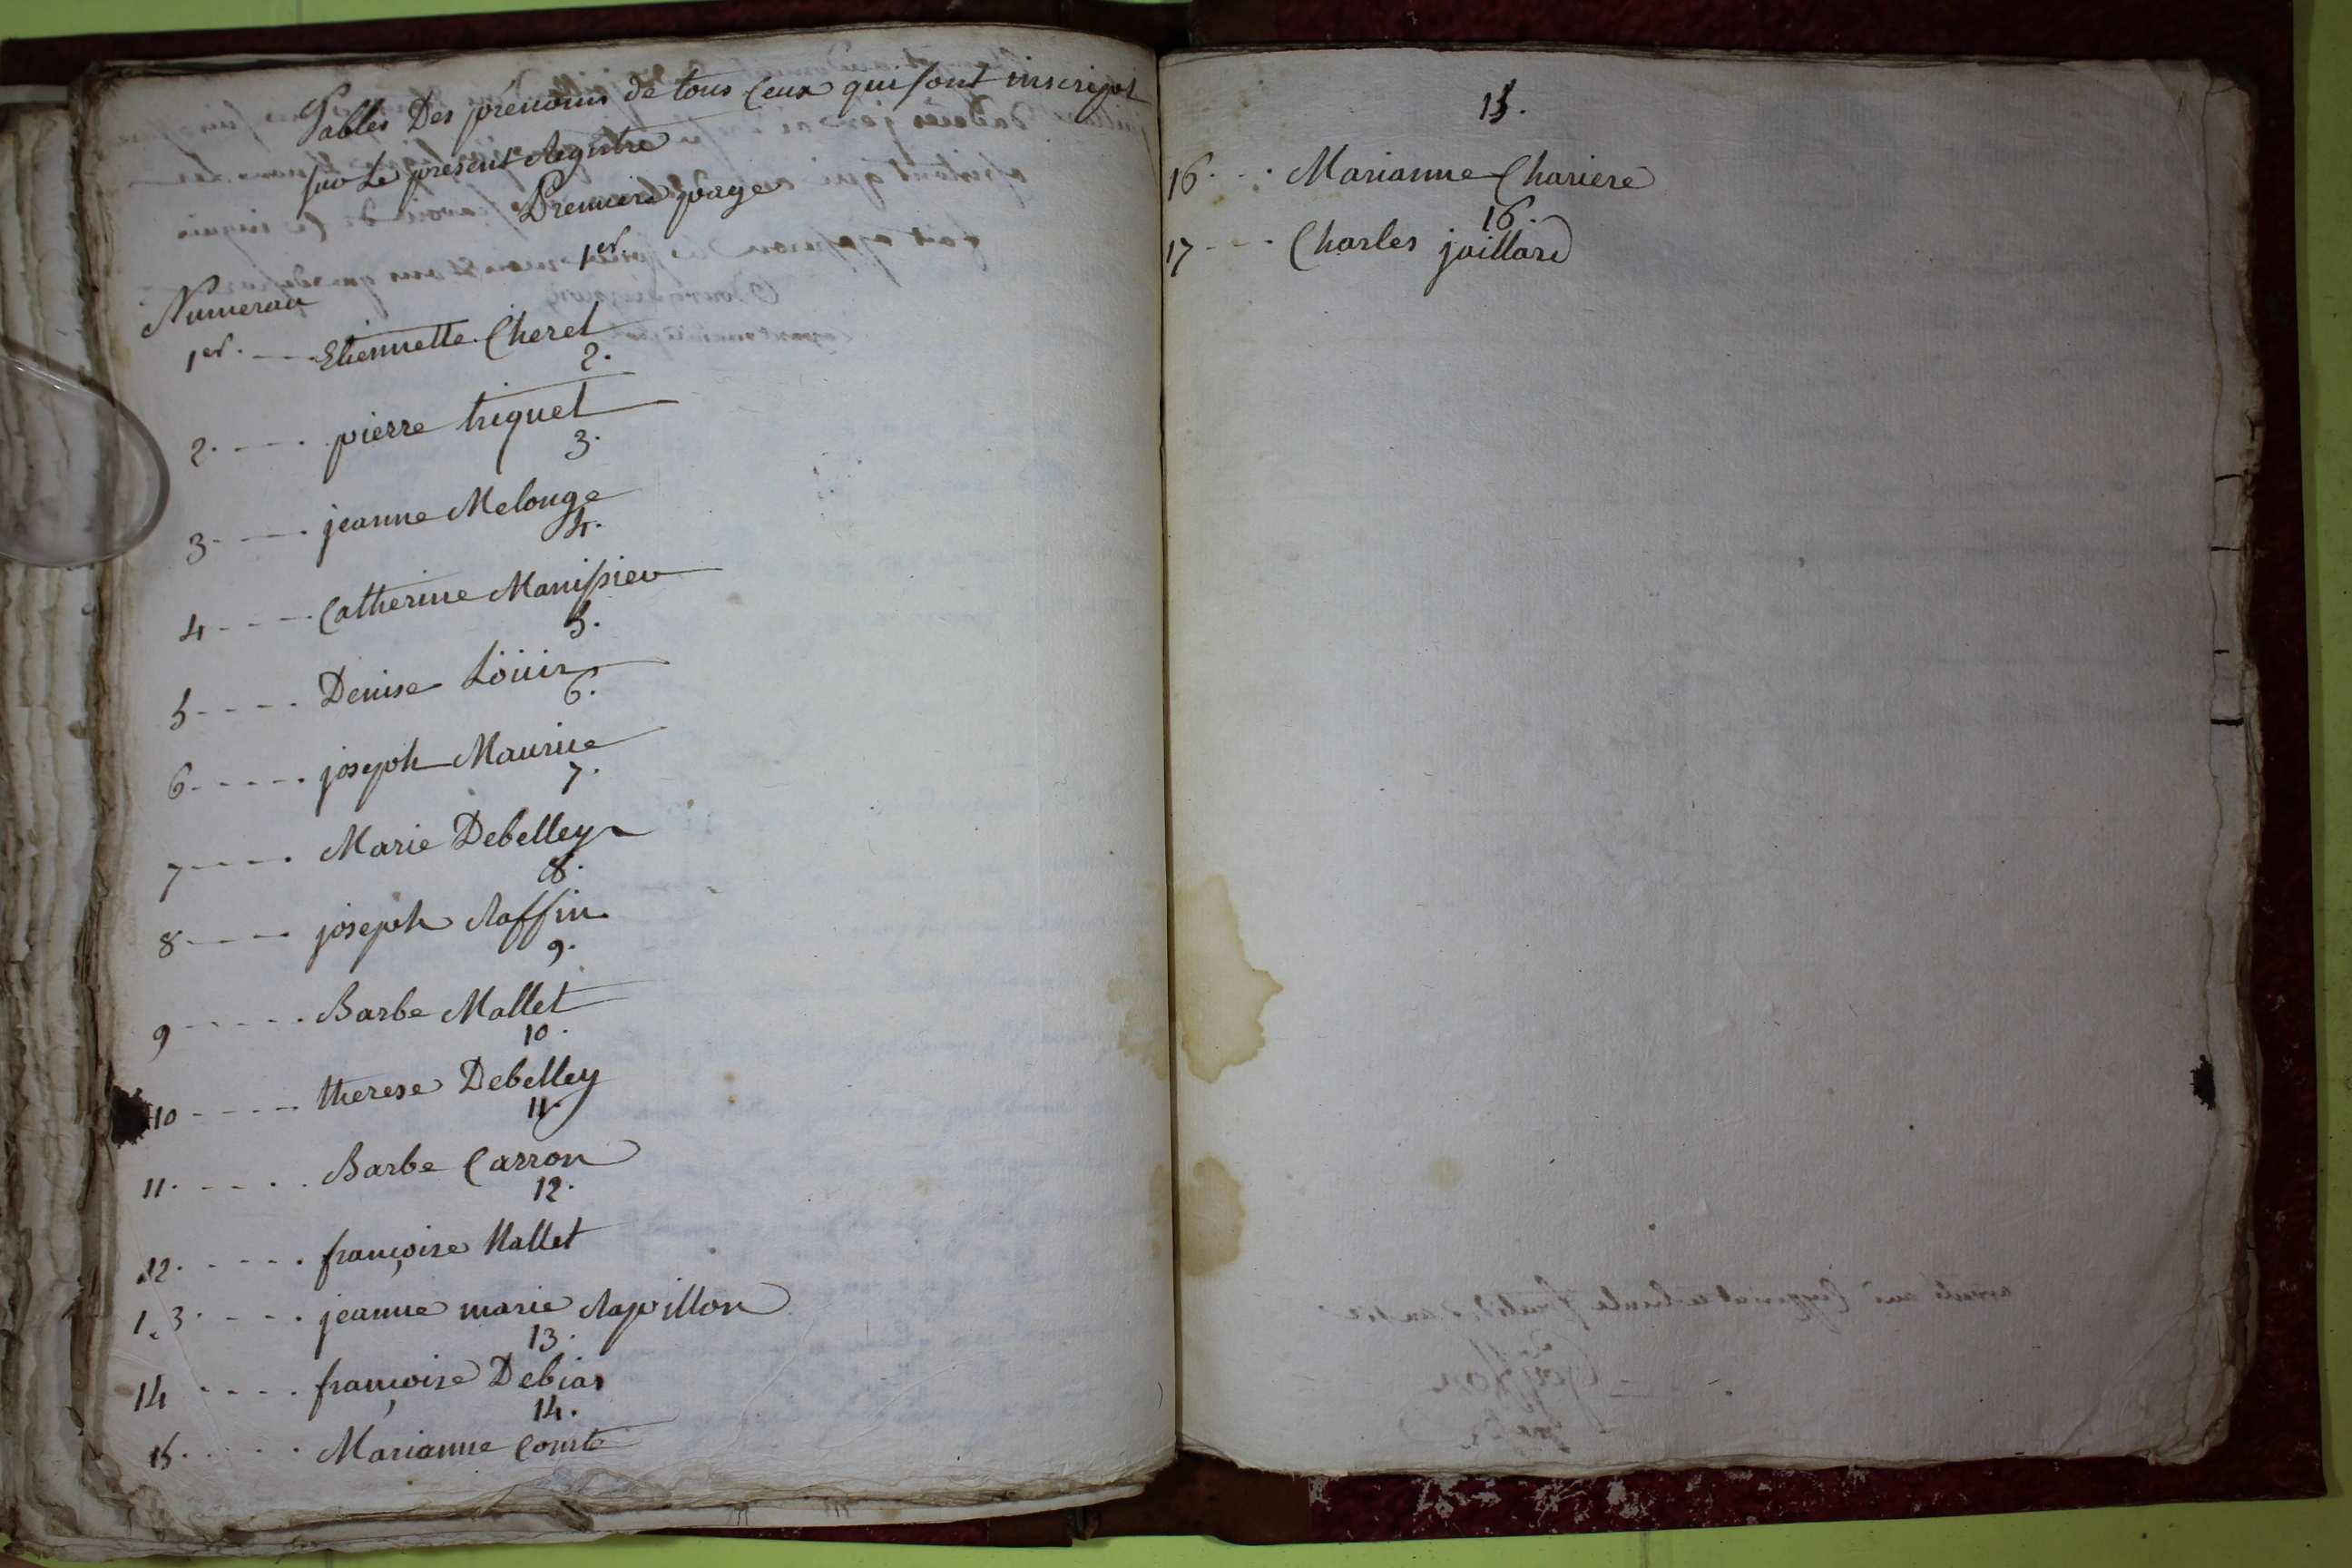 Tables Des prénoms de tous Ceux qui sont inscript
sur Le présent Registre
Premiere page
1er.
Numerau
1er. - - - Etiennette Cheret
2.
2. - - - . pierre triguet
3.
3. - - - . jeanne Melonge
4.
4 - - - - . Catherine Manissieu
5.
5 - - - - . Denise Löüis
6.
6. - - - - . joseph Maurice
7.
7 - - - - . Marie Debelley
8.
8 - - - - joseph Raffin
9.
9 - - - - - . Barbe Mallet
10.
10 - - - - - therese Debelley
11.
11. - - - . . Barbe Carron
12.
12. - - - - . françoise Mallet
1.3. - - - . jeanne marie Rapillon
13.
14 - - - - . françoise Debias
14.
15. - - - . Marianne Comte
15.
16. - . Marianne Chariere
16.
17 - - - . Charles jaillard